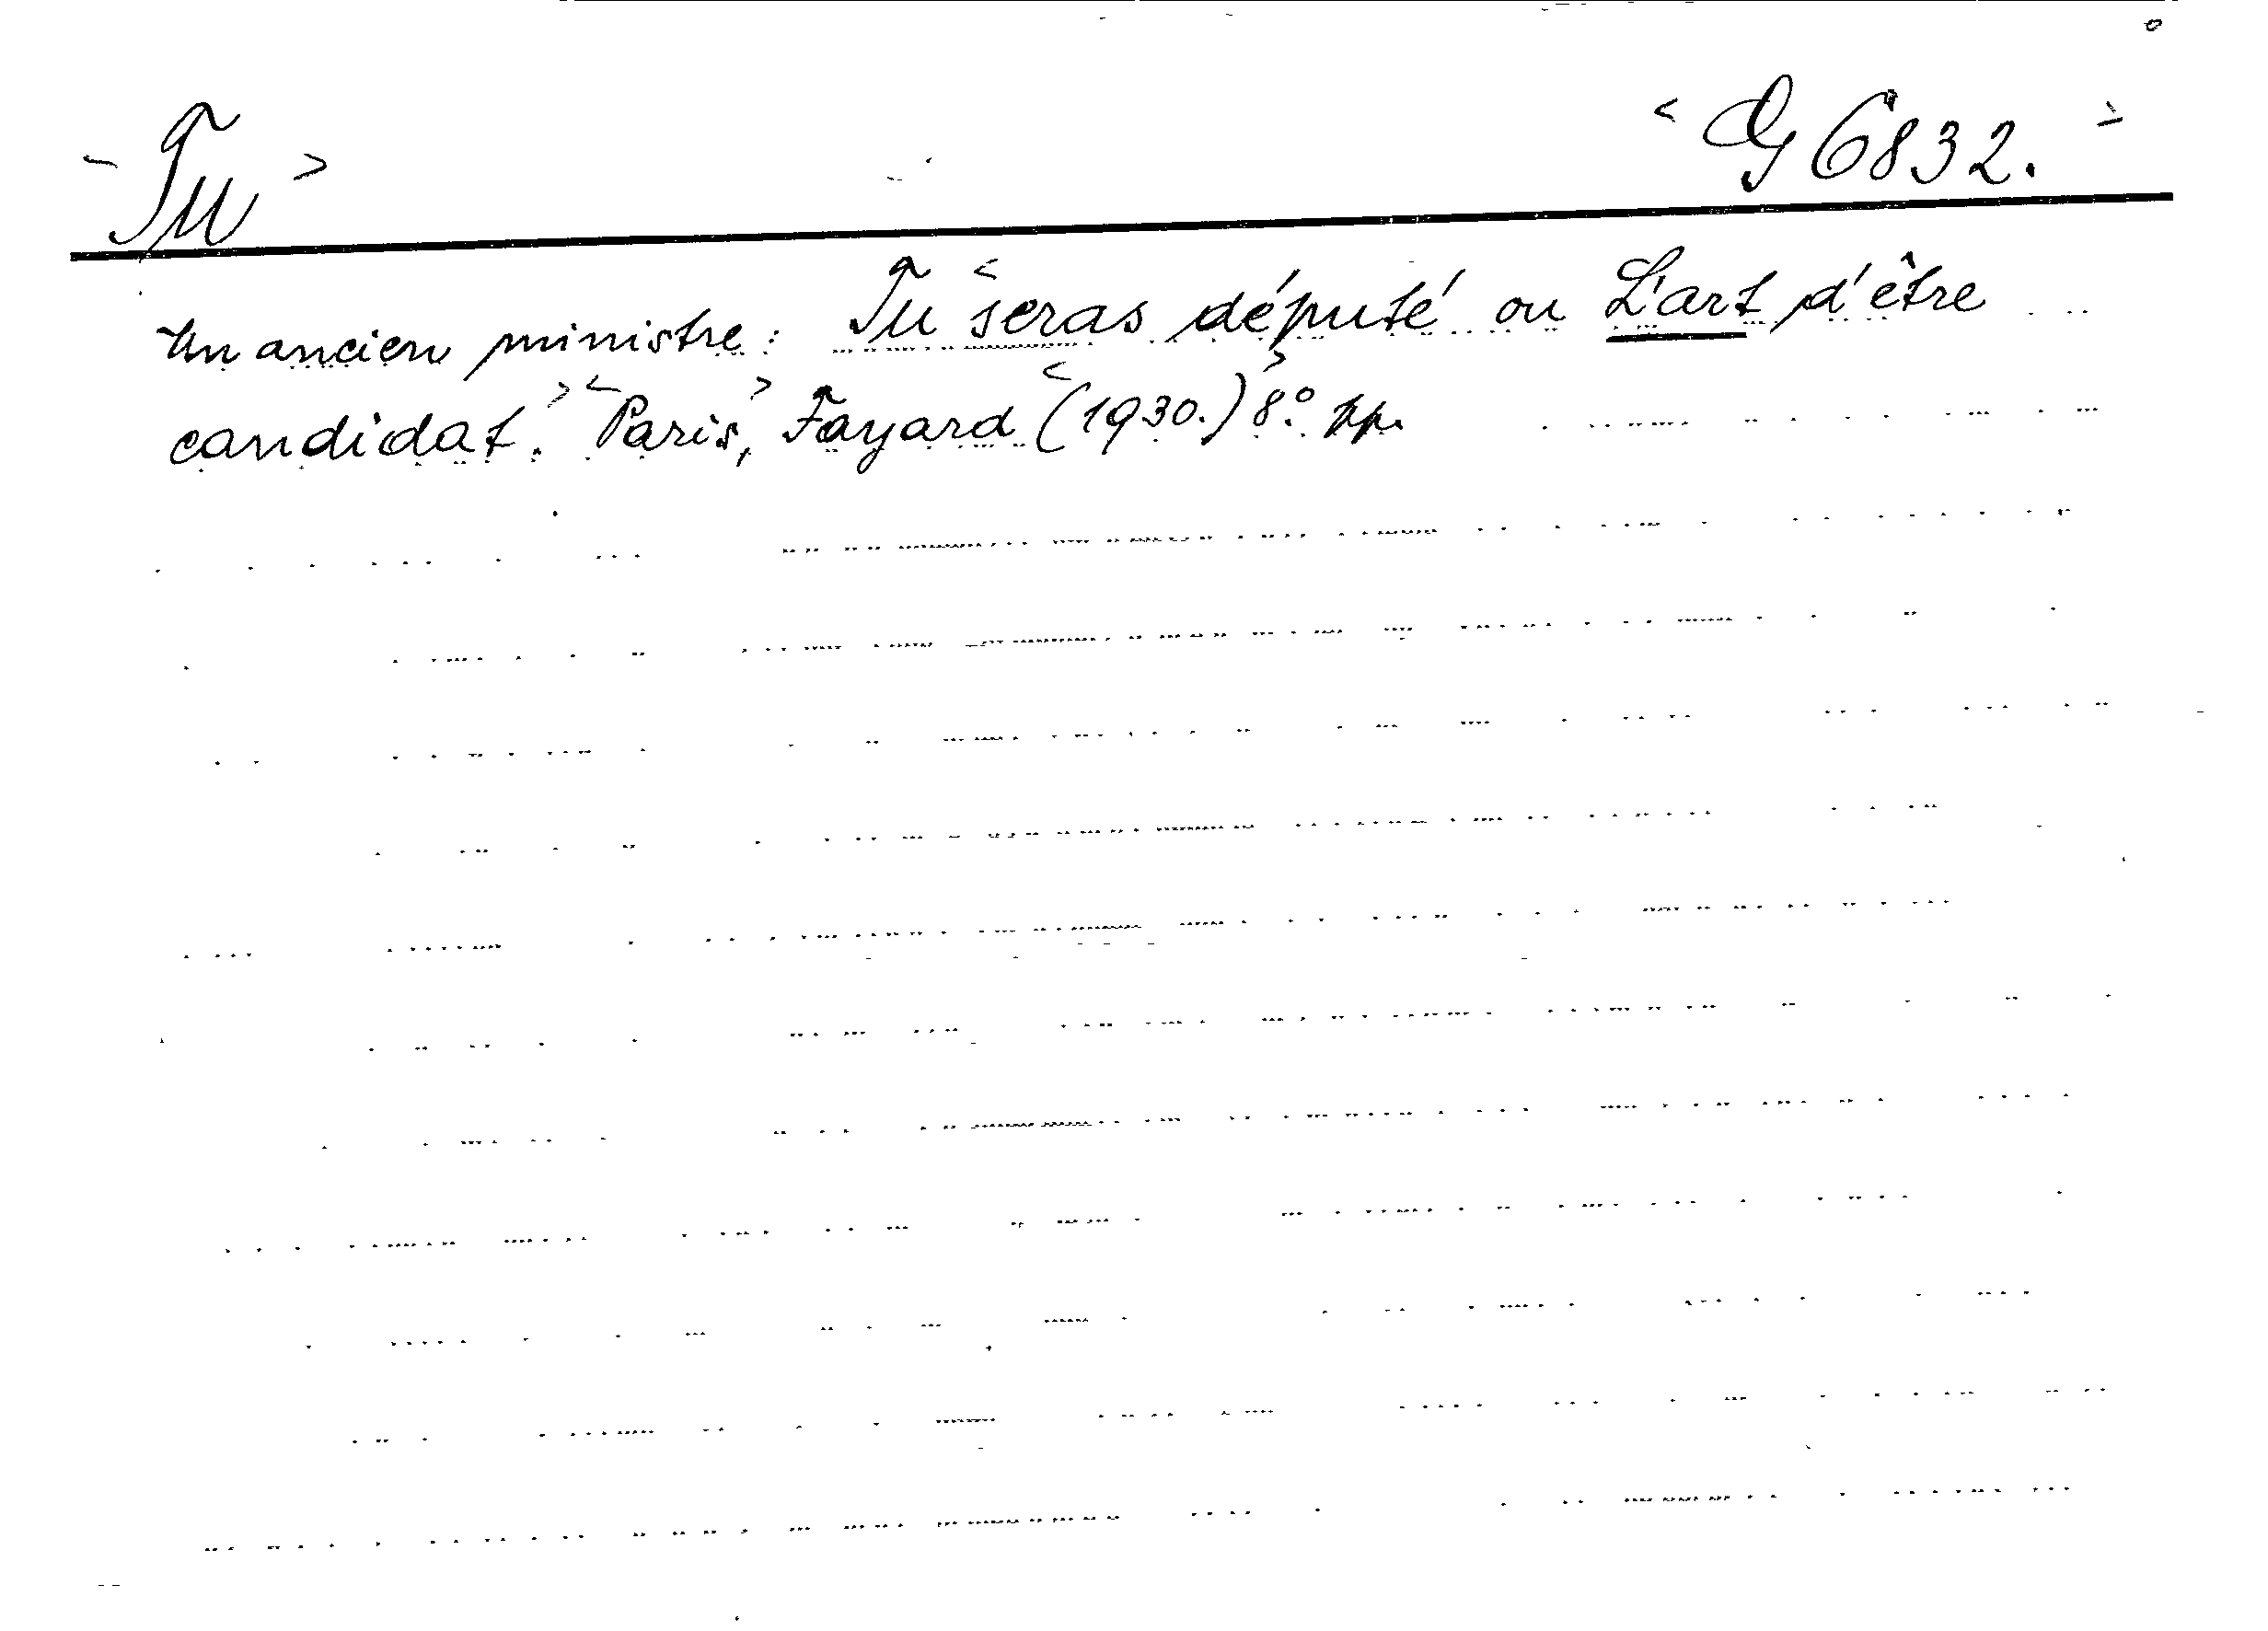 Tu G 6832.
Un ancien ministre: Tu seras député ou L'art d'être
candidat. Paris, Fayard (1930.) 8° pp.